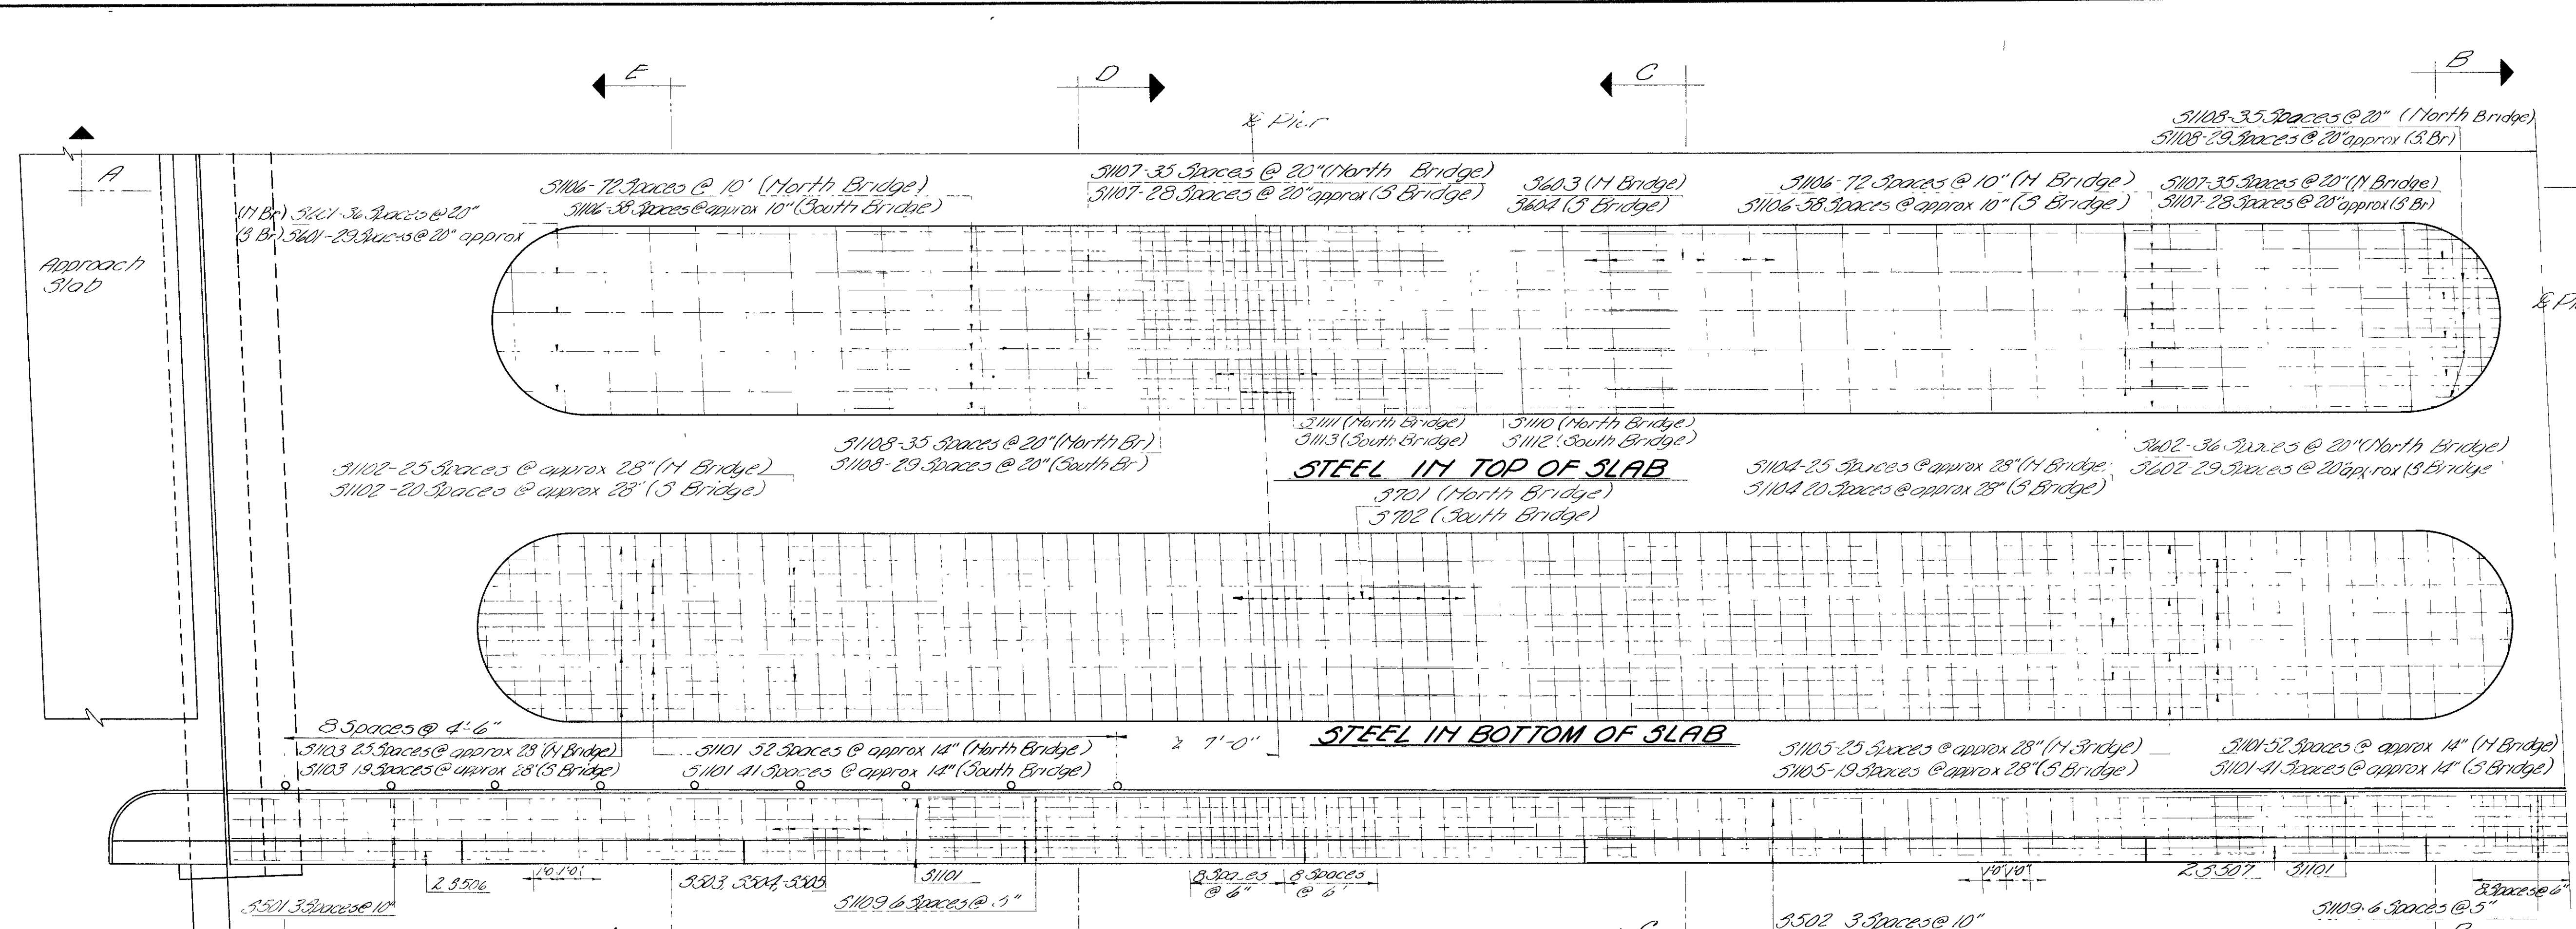 E
D
C
B
℄ Pier
S1108-35 Spaces @ 20" (North Bridge)
S1108-29 Spaces @ 20" approx (S.Br)
A
S1106-72 Spaces @ 10" (North Bridge)
S1106-58 Spaces @ approx 10" (South Bridge)
S1107-35 Spaces @ 20" (North Bridge)
S1107-28 Spaces @ 20" approx (S Bridge)
S603 (N Bridge)
S604 (S Bridge)
S1106-72 Spaces @ 10" (N Bridge)
S1106-58 Spaces @ approx 10" (S Bridge)
S1107-35 Spaces @ 20" (N Bridge)
S1107-28 Spaces @ 20" approx (S Br)
(N Br) S601-36 Spaces @ 20"
(S Br) S601-29 Spaces @ 20" approx
Approach
Slab
℄
S1111 (North Bridge)
S1113 (South Bridge)
S1110 (North Bridge)
S1112 (South Bridge)
S1108-35 Spaces @ 20" (North Br)
S1108-29 Spaces @ 20" (South Br)
S1102-25 Spaces @ approx 28" (N Bridge)
S1102-20 Spaces @ approx 28" (S Bridge)
STEEL IN TOP OF SLAB
S701 (North Bridge)
S702 (South Bridge)
S1104-25 Spaces @ approx 28" (N Bridge)
S1104 20 Spaces @ approx 28" (S Bridge)
S602-36 Spaces @ 20" (North Bridge)
S602-29 Spaces @ 20" approx (S Bridge
8 Spaces @ 4'-6"
S1103 25 Spaces @ approx 28" (N Bridge)
S1103 19 Spaces @ approx 28" (S Bridge)
S1101 52 Spaces @ approx 14" (North Bridge)
S1101 41 Spaces @ approx 14" (South Bridge)
7'-0"
STEEL IN BOTTOM OF SLAB
S1105-25 Spaces @ approx 28" (N Bridge)
S1105-19 Spaces @ approx 28" (S Bridge)
S1101-52 Spaces @ approx 14" (N Bridge)
S1101-41 Spaces @ approx 14" (S Bridge)
2 S506
1'0" 1'0"
S503, S504, S505
S1101
8 Spaces
@ 6"
8 Spaces
@ 6"
1'0" 1'0"
2 S507
S1101
8 Spaces @ 6"
S501 3 Spaces @ 10"
S1109 6 Spaces @ 5"
S502 3 Spaces @ 10"
S1109-6 Spaces @ 5"